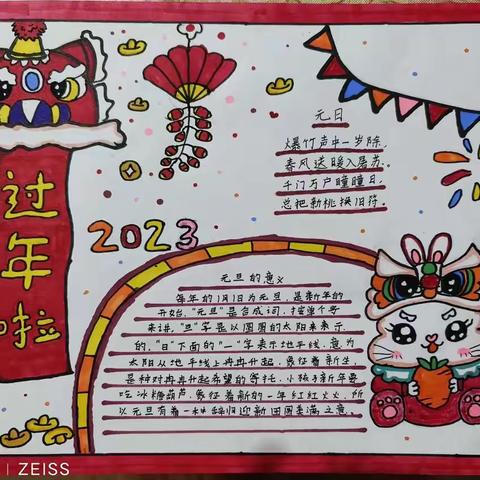 过年啦
元日
爆竹声中一岁除,
春风送暖入屠苏。
千门万户瞳瞳日,
总把新桃换旧符。
2023
元旦的意义
每年的1月1日为元旦,是新年的
开始,“元旦”是合成词,按单个字
来讲,“旦”字是以圆圆的太阳来表示
的,“日”下面的“一”字表示地平线,意为
太阳从地平线上冉冉升起,象征着新生,
是种对冉冉升起希望的寄托,小孩子新年要
吃冰糖葫芦,象征着新的一年红红火火,所
以元旦有着一种辞旧迎新团圆美满之意。
ZEISS